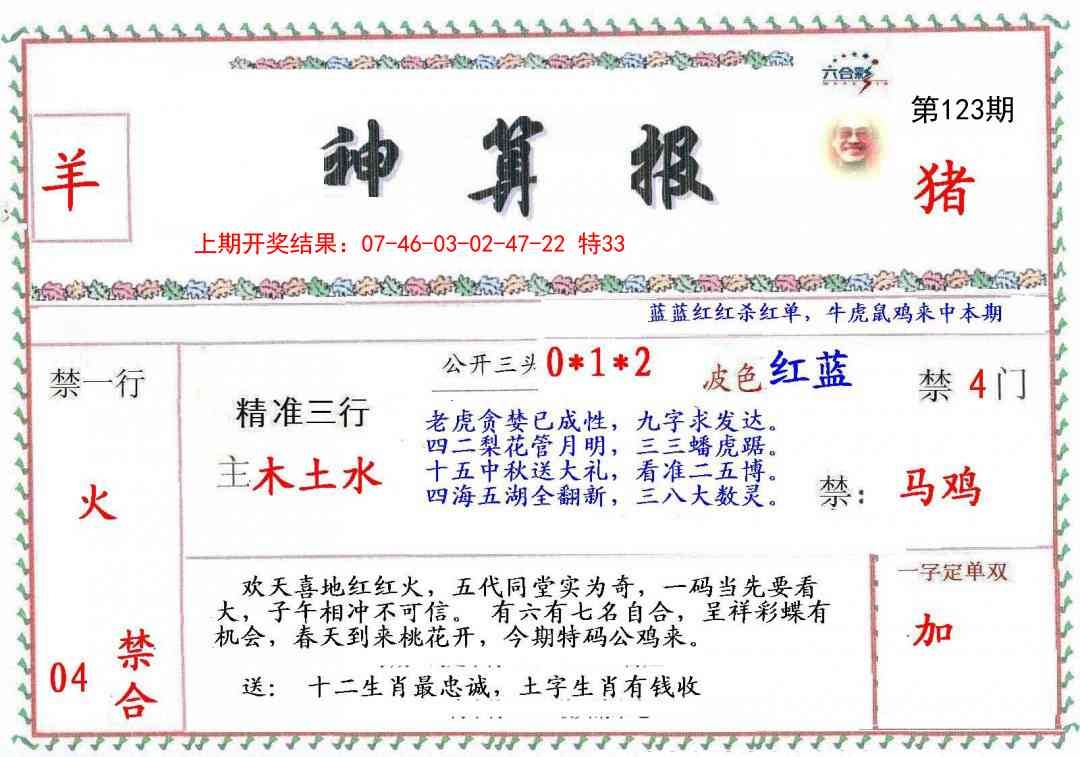 六合彩
第123期
羊
神算报
猪
上期开奖结果：07-46-03-02-47-22 特33
蓝蓝红红杀红单，牛虎鼠鸡来中本期
禁一行
公开三头 0*1*2
波色 红蓝
禁 4 门
精准三行
老虎贪婪已成性，九字求发达。
四二梨花管月明，三三蟠虎踞。
主木土水
十五中秋送大礼，看准二五博。
四海五湖全翻新，三八大数灵。
禁：马鸡
火
一字定单双
欢天喜地红红火，五代同堂实为奇，一码当先要看
大，子午相冲不可信。 有六有七名自合，呈祥彩蝶有
机会，春天到来桃花开，今期特码公鸡来。
加
04 禁合
送： 十二生肖最忠诚，土字生肖有钱收